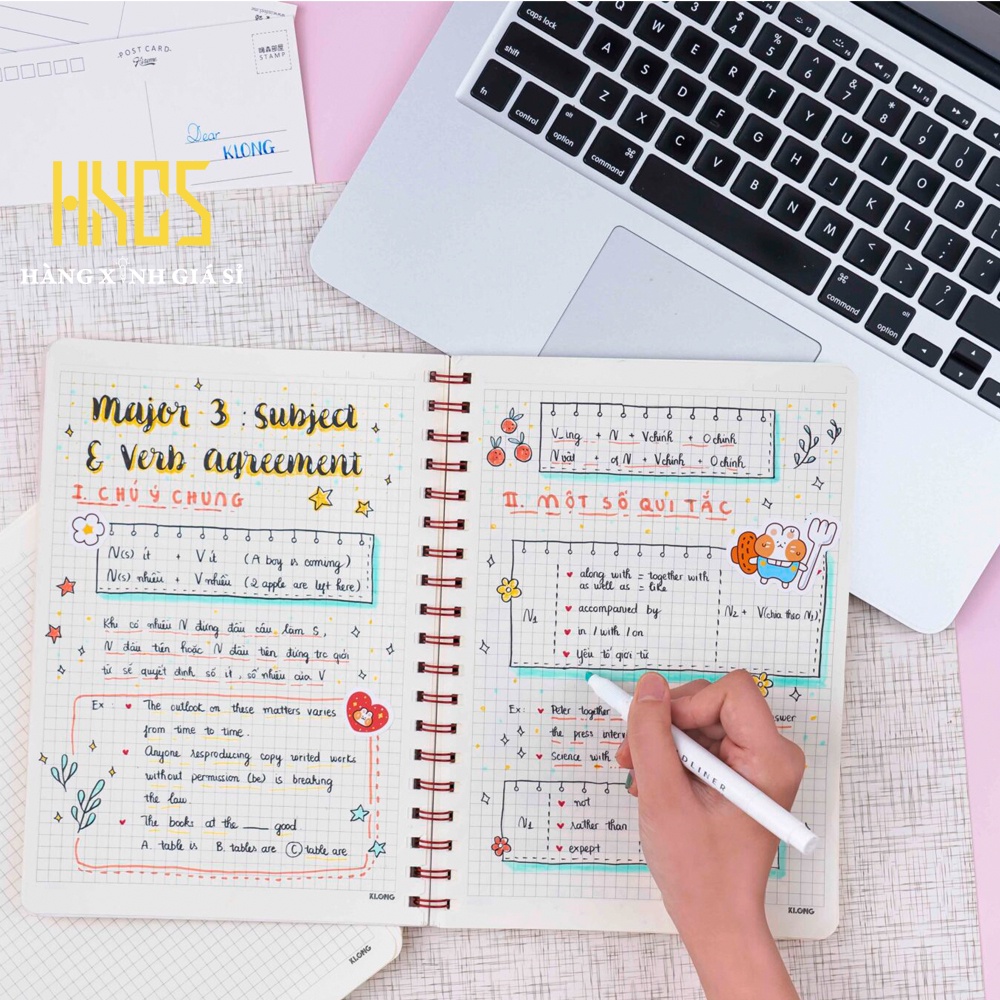 POST CARD.
STAMP
Dear
KLONG
HXCS
HÀNG XỊNH GIÁ SỈ
caps lock
shift
fn
control
alt
option
command
Q W E R T Y U I O
A S D F G H J K L
Z X C V B N M
command
alt
option
Major 3 : Subject
& Verb agreement
I. CHÚ Ý CHUNG
N(s) ít + V ít (A boy is coming)
N(s) nhiều + V nhiều (2 apple are left here)
Khi có nhiều N đứng đầu câu làm S,
N đầu tiên hoặc N đầu tiên đứng trc giới
từ sẽ quyết định số ít, số nhiều của V
Ex : The outlook on these matters varies
from time to time.
Anyone resproducing copy writed works
without permission (be) is breaking
the law
The books at the ___ good.
A. table is B. tables are C table are
KLONG
V_ing + N + Vchính + O chính
N vật + N + Vchính + O chính
II. MỘT SỐ QUI TẮC
N1
along with = together with
as well as = like
accompanied by
in / with / on
Yếu tố giới từ
N2 + V(chia theo N1)
Ex : Peter together answer
the press interv
Science with
N1
not
rather than
expept
DLINER
KLONG
KLONG